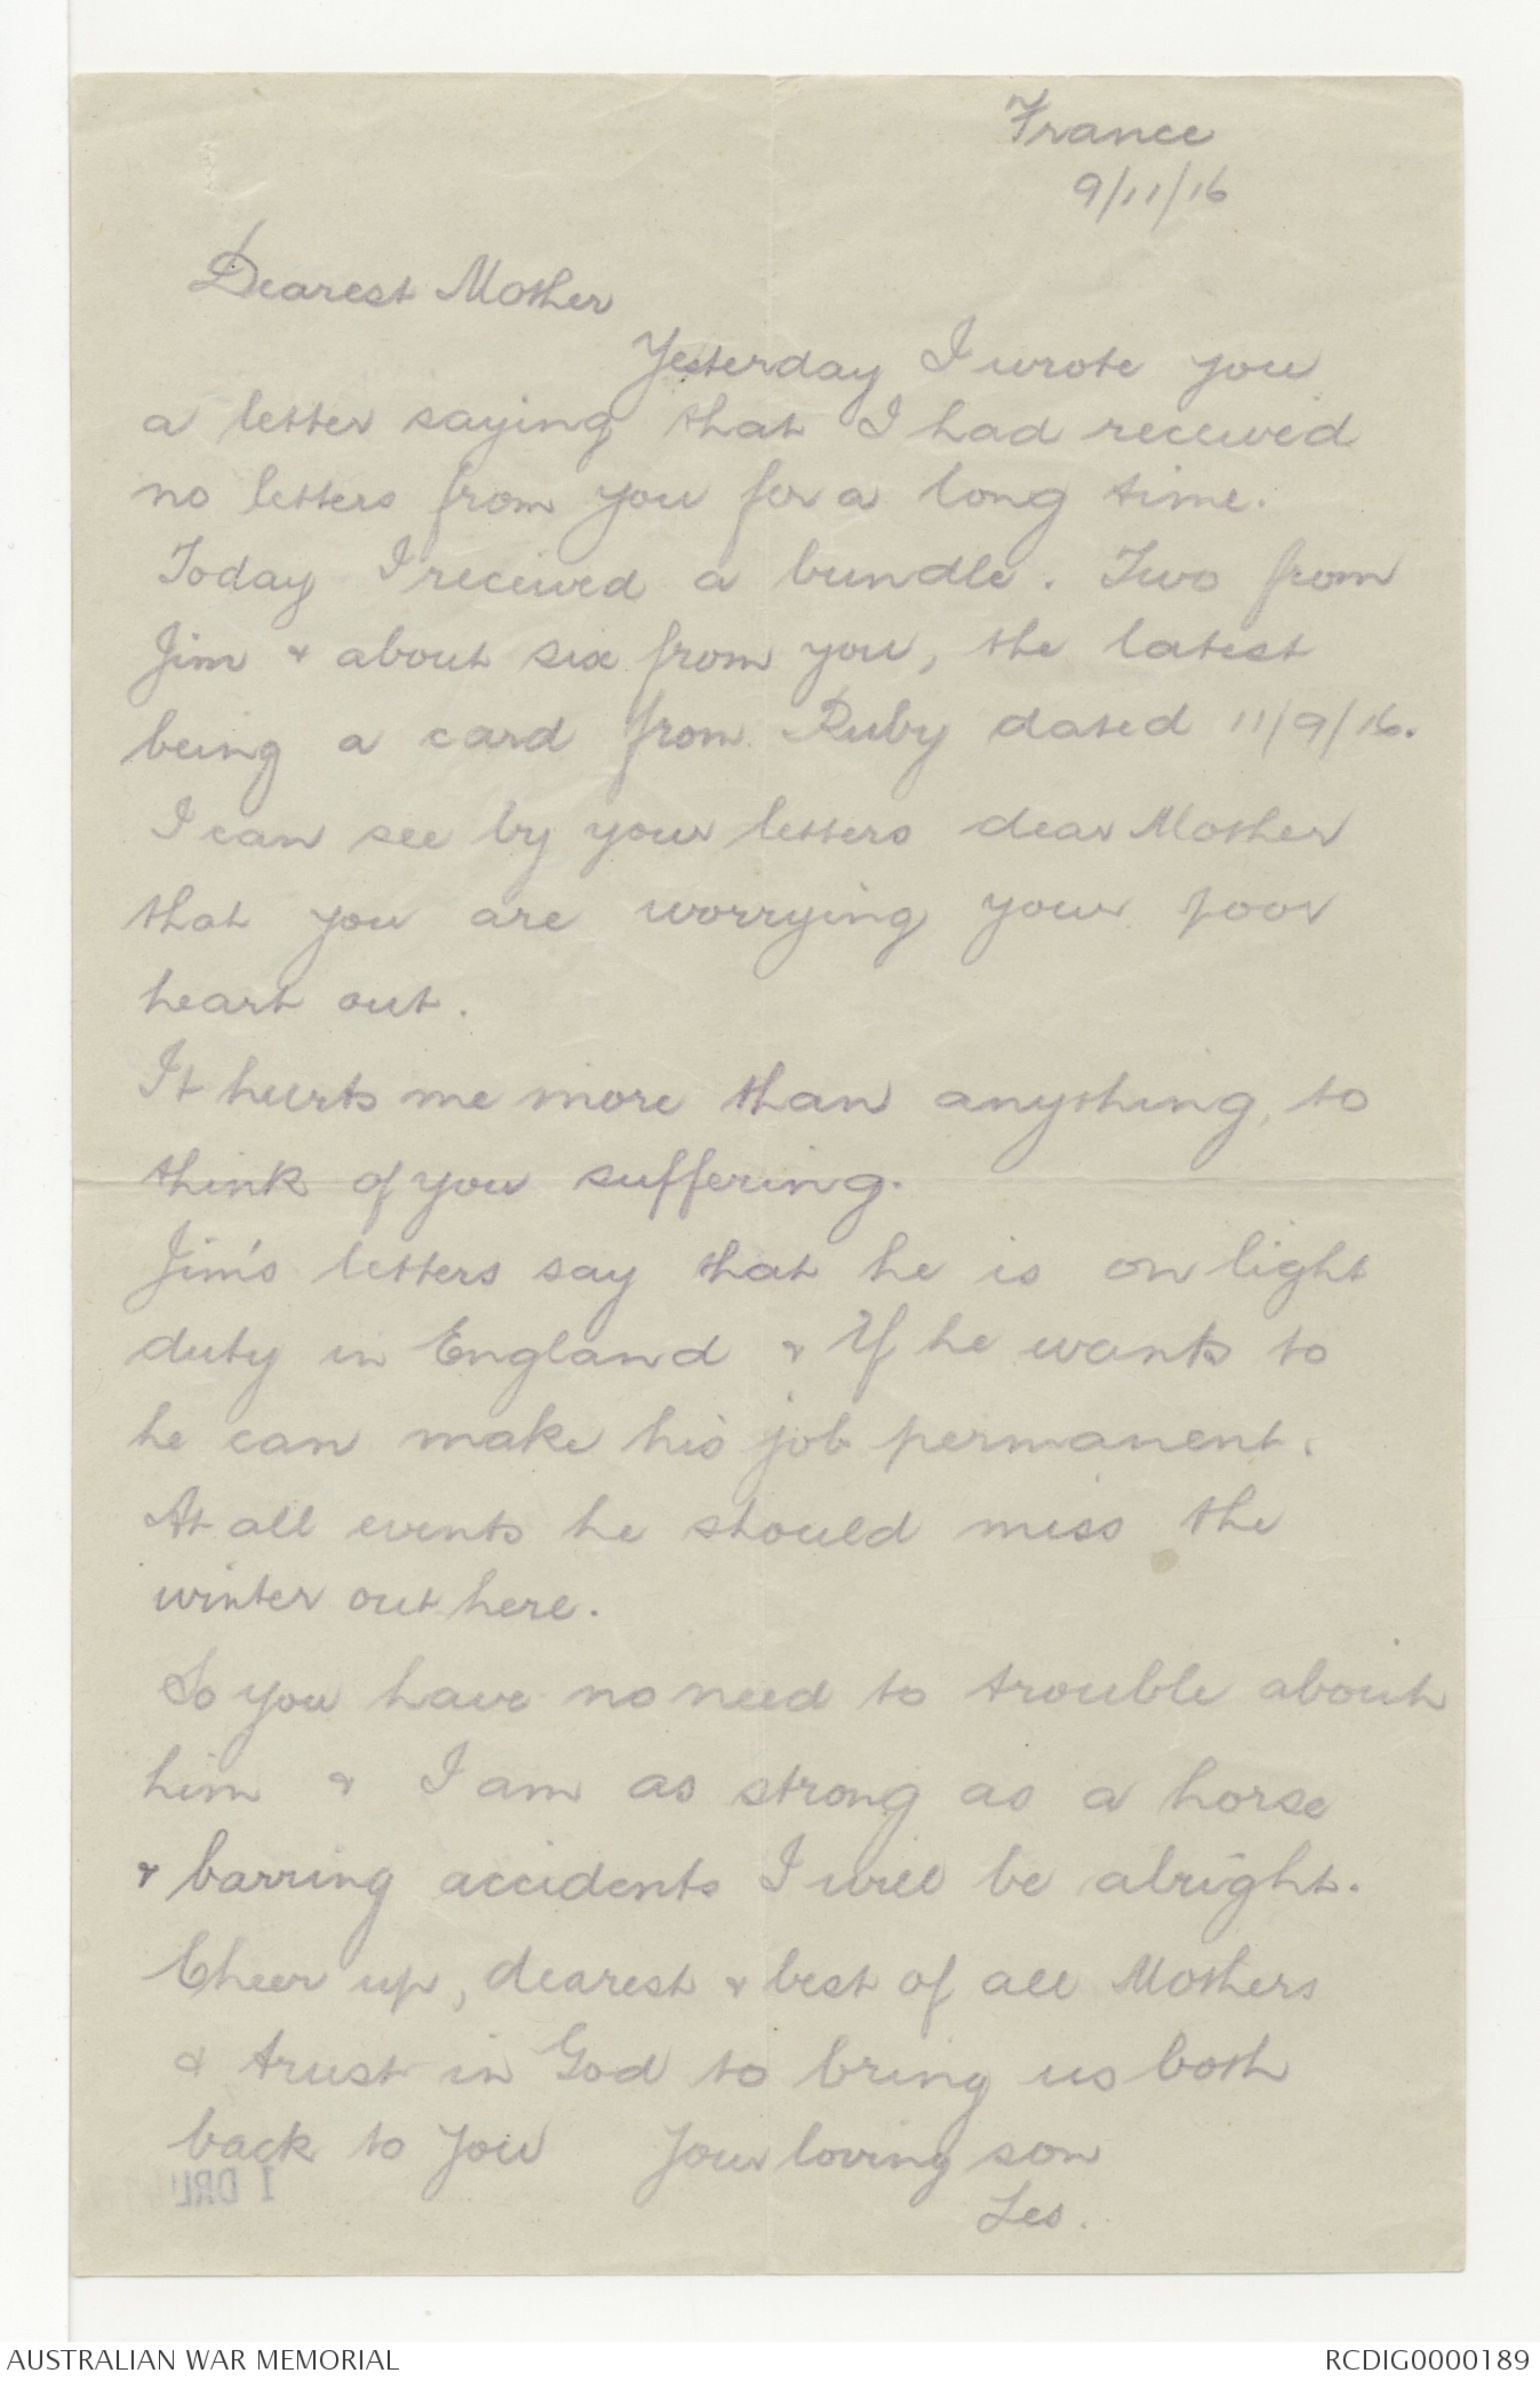 France
9/11/16
Dearest Mother
Yesterday I wrote you
a letter saying that I had received
no letters from you for a long time.
Today I received a bundle. Two from
Jim & about six from you, the latest
being a card from Ruby dated 11/9/16.
I can see by your letters dear Mother
that you are worrying your poor
heart out.
It hurts me more than anything, to
think of you suffering.
Jim's letters say that he is on light
duty in England & If he wants to
he can make his job permanent.
At all events he should miss the
winter out here.
So you have no need to trouble about
him & I am as strong as a horse
& barring accidents I will be alright.
Cheer up, dearest & best of all Mothers
& trust in God to bring us both
back to you Your loving son
Les.
1 DRL
AUSTRALIAN WAR MEMORIAL
RCDIG0000189